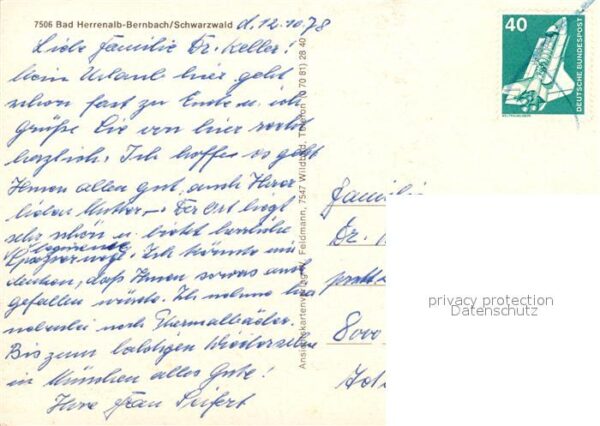 7506 Bad Herrenalb-Bernbach/Schwarzwald d. 12.10.78
Liebe Familie Dr. Keller!
Mein Urlaub hier geht
schon fast zu Ende u. ich
grüße Sie von hier recht
herzlich. Ich hoffe es geht
Ihnen allen gut, auch Ihrer
lieben Mutter. – Der Ort liegt
sehr schön u. bietet herrliche
Spazierwege. Ich könnte mir
denken, daß Ihnen sowas auch
gefallen würde. Ich nehme hier
nebenbei noch Thermalbäder.
Bis zum baldigen Wiedersehen
in München alles Gute!
Ihre Frau Seifert
Ansichtskartenverlag W. Feldmann, 7547 Wildbad, Telefon (0 70 81) 28 40
40
DEUTSCHE BUNDESPOST
WELTRAUMLABOR
Familie
Dr.
8000
privacy protection
Datenschutz